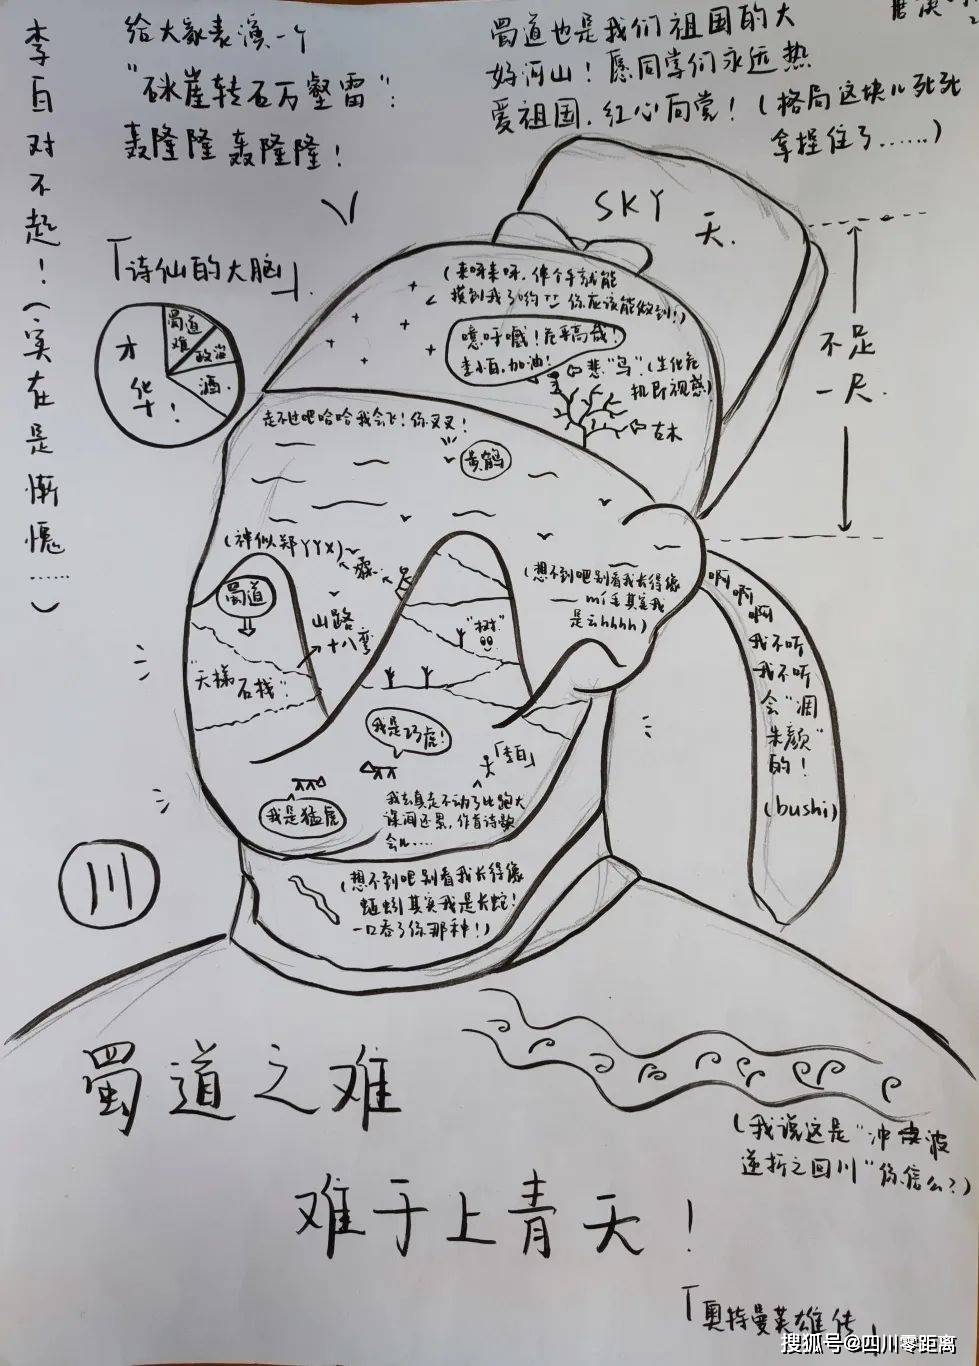 李白对不起!(实在是惭愧……)
给大家表演一个
"砯崖转石万壑雷":
轰隆隆轰隆隆!
蜀道也是我们祖国的大
好河山!愿同学们永远热
爱祖国,红心向党!(格局这块儿死死
拿捏住了……)
「诗仙的大脑」
蜀道
难
政治
酒.
才
华!
SKY
天.
不足
一尺.
(来呀来呀,伸个手就能
摸到我了哟 你应该能做到!)
噫吁嚱!危乎高哉!
李小白,加油!
悲"鸟"(生化危
机即视感)
古木
走不过吧哈哈我会飞!你叉叉!
黄鹤
(神似郑YYX)
猿
蜀道
山路
十八弯
"天梯
石栈"
"树"
(想不到吧别看我长得像
一一mí毛其实我
是云hhhh)
我是巧虎!
我是猛虎
「李白」
我去真走不动了比跑大
课间还累,作首诗歇
会儿……
(想不到吧别看我长得像
蚯蚓其实我是长蛇!
一口吞了你那种!)
啊啊啊
我不听
我不听
会"凋
朱颜"
的!
(bushi)
川
蜀道之难
难于上青天!
(我说这是"冲波
逆折之回川"你信么?)
「奥特曼英雄传」
搜狐号@四川零距离